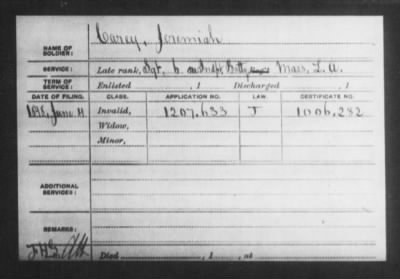 Carey, Jeremiah
NAME OF SOLDIER:
SERVICE: Late rank, Sgt, 6 Batty Mass. L. A.
TERM OF SERVICE: Enlisted , 1 Discharged , 1
DATE OF FILING. CLASS. APPLICATION NO. LAW. CERTIFICATE NO.
June Invalid, 1207.633 J 1006,282
Widow,
Minor,
ADDITIONAL SERVICES:
REMARKS:
Died , 1 , at